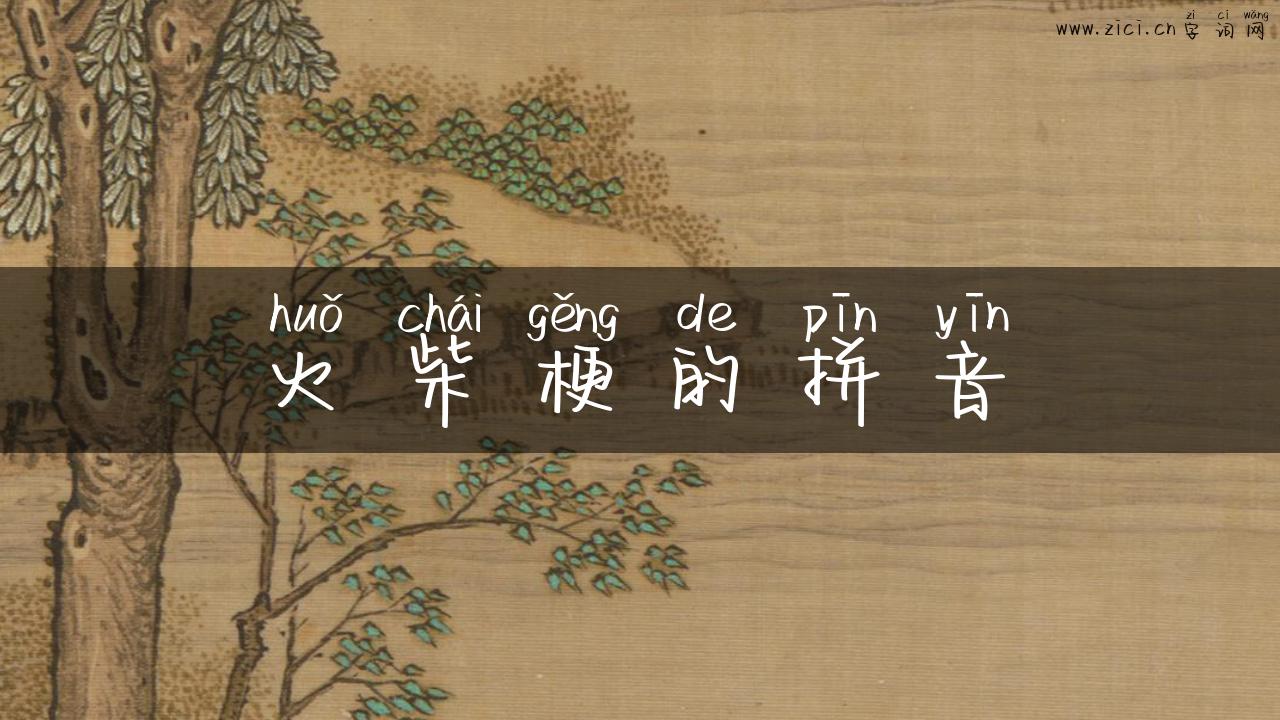 zì cí wǎng
www.zici.cn 字 词 网
huǒ chái gěng de pīn yīn
火 柴 梗 的 拼 音